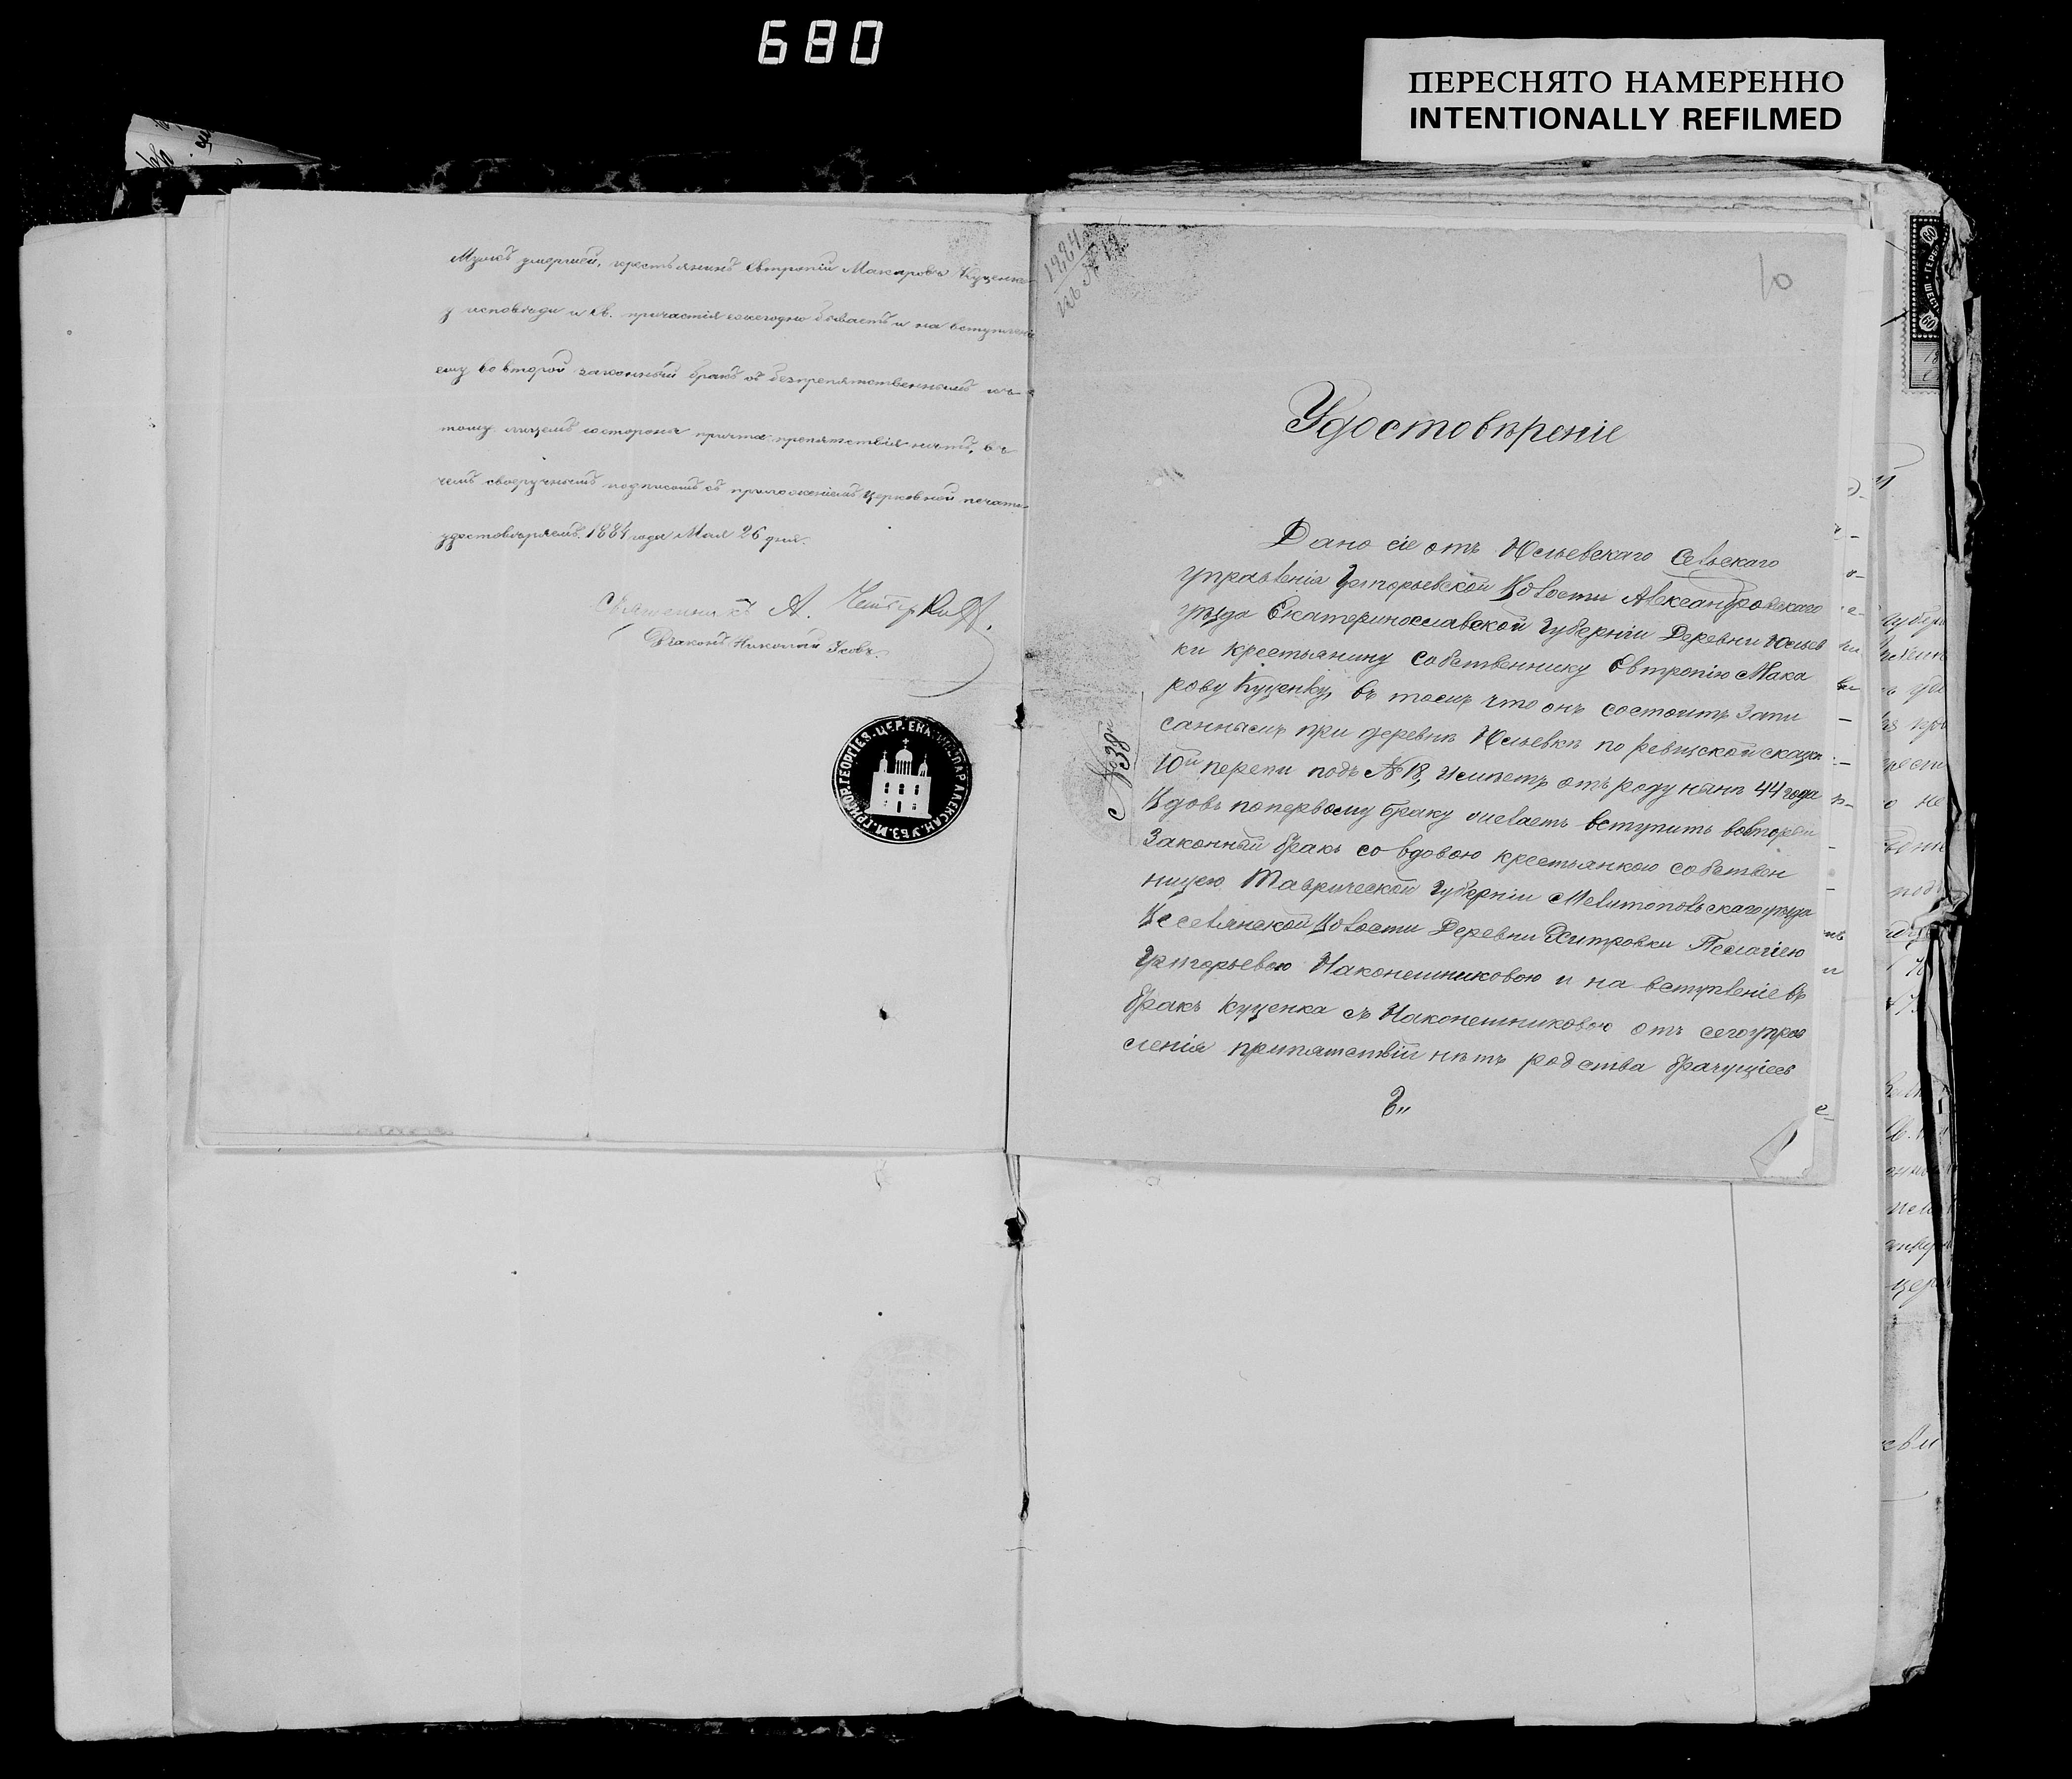 680
ПЕРЕСНЯТО НАМЕРЕННО
INTENTIONALLY REFILMED
Мужъ умершей, крестьянинъ Евтропій Макаровъ Куценко
у исповѣди и Св. причастія ежегодно бываетъ и на вступленіе
ему во второй законный бракъ съ безпрепятственнымъ къ
тому лицемъ со стороны причта препятствія нѣтъ, въ
чемъ своеручнымъ подписомъ съ приложеніемъ церковной печати
удостовѣряемъ. 1884 года Мая 26 дня.
Священникъ А.
Діаконъ Николай
ГЕОРГІЕВ. ЦЕР. ЕКАТ. ЕПАР. АЛЕКСАН. УѢЗ.
10
1884
№ 19
№38й
Удостовѣреніе
Дано сіе отъ Юльевскаго Сельскаго
управленія Григорьевской Волости Александровскаго
уѣзда Екатеринославской Губерніи Деревни Юльев
ки крестьянину собственнику Евтропію Мака
рову Куценку, въ томъ что онъ состоитъ запи
саннымъ при деревнѣ Юльевкѣ по ревизской сказкѣ
10й перепи подъ №18, имѣетъ отъ роду нынѣ 44 года
Вдовъ по первому браку желаетъ вступить вовторой
Законный бракъ со вдовою крестьянкою собствен
ницею Таврической Губерніи Мелитопольскаго уѣзда
Веселянской Волости Деревни Пелагіею
Григорьевою Наконешниковою и на вступленіе въ
бракъ Куценка съ Наконешниковою отъ сего управ
ленія припятствій нѣтъ родства брачущіесь